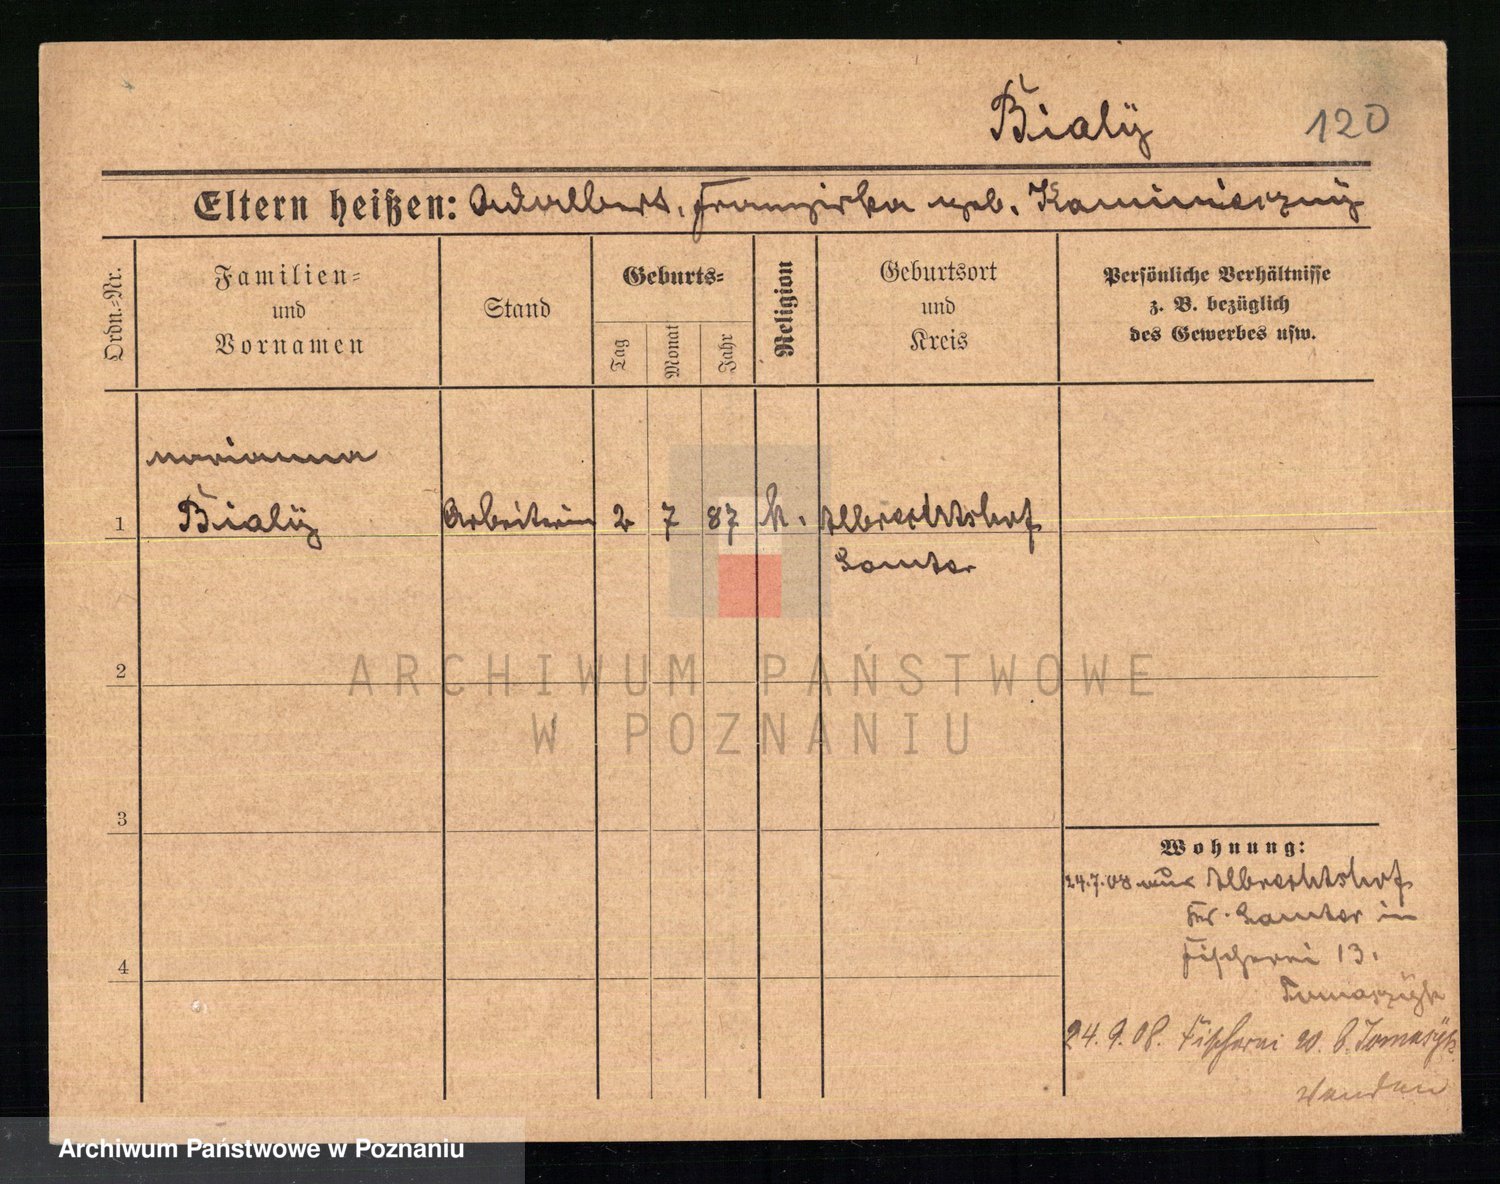 Bialÿ 120
Eltern heißen: Adalbert, Franziska geb. Kaminiarznÿ
Ordn.=Nr.
Familien=
und
Vornamen
Stand
Geburts=
Tag
Monat
Jahr
Religion
Geburtsort
und
Kreis
Persönliche Verhältnisse
z. B. bezüglich
des Gewerbes usw.
Marianna
1 Bialÿ Arbeiterin 2 7 87 k. Albrechtshof
Samter
2
ARCHIWUM PAŃSTWOWE
W POZNANIU
3
Wohnung:
24.7.08 aus Albrechtshof
Kr. Samter in
Fischerei 13.
4
Tomaszÿk
24. 9. 08. Fischerei 20. b. Tomaszÿk
Wenden
Archiwum Państwowe w Poznaniu